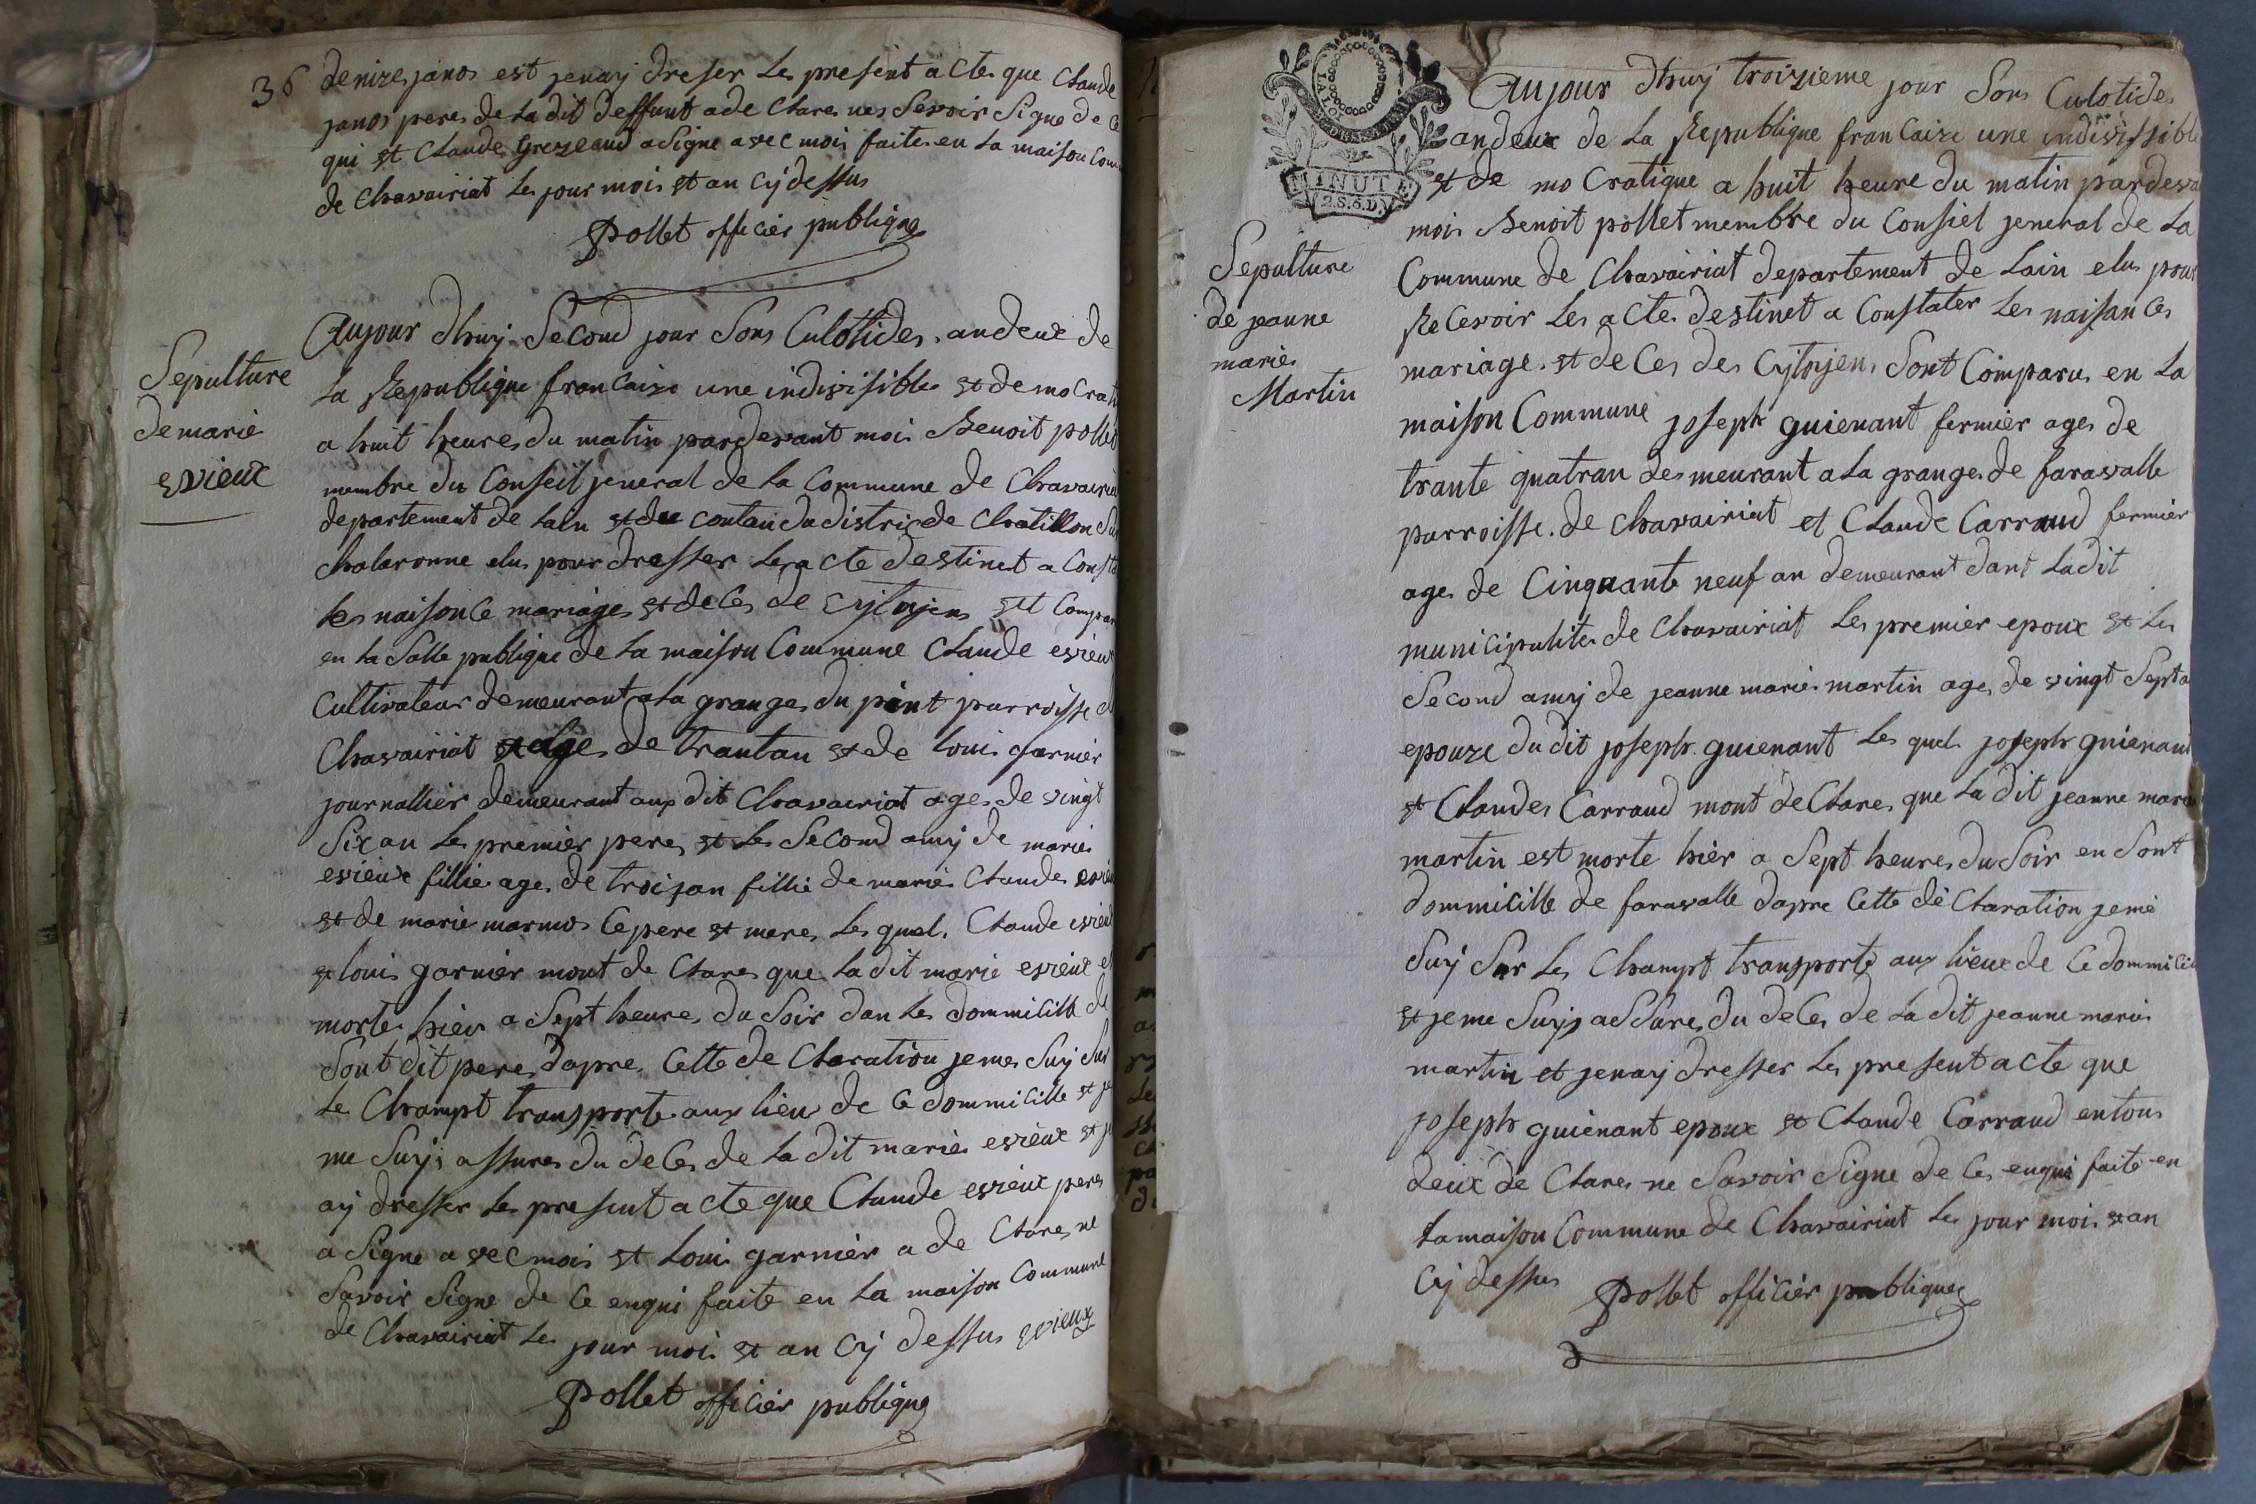 36
denize janos est jenaij dreser les present acte que Claude
janos pere de la dit deffunt a de Clare nes Sevoir Signe de Ce
qui et Claude Grezeaud a Signe avec mois faite en La maison Com
de Chavairiat Les jour mois et an Cij dessus
Pollet officier publique
Sepulture
de marie
evieux
Aujour dhuij Second jour Sons Culotides an deux de
La Republique francaize une indivisible et de mo Crat
a huit heures du matin pardevant mois Benoit pollet
membre du Conseil jeneral de La Commune de Chavairia
departement de Lain et du contau du distric de Chatillon Sur
Chalaronne elus pour dresser Les acte destinet a Consta
Les naisonce mariages et deces de Cijtoijens est Compar
en La Salle publique de La maison Commune Claude evieux
Cultivateur demeurant a La granges du pint parroisse d
Chavairiat age de trantan et de Loui garnier
journallier demeurant aux dit Chavairiat ages de vingt
Six an Les premier peres et Les Second amij de maries
evieux fillie ages de troizan fillie de maries Claudes evie
et de marie marmos Ce pere et mere Les quel. Claude evieu
et Louis garnier mont de Clare que La dit marie evieux e
morte hier a Sept heures du Soir dan Les dommicille de
Sont dit peres dapre Cette de Claration jemes Suij Sur
Le Champt transportes aux lieu de Ce dommicille et je
me Suijs assures du deces de La dit maries evieux et j
aij dresser Les present acte que Claude evieux peres
a Signe avec mois et Louis garnier a de Clares ne
Savoir Signe de Ce enqui faite en La maison Commune
de Chavairiat Les jour mois et an Cij dessus evieux
Pollet officier publique
MINUTE
2.S.6.D.
Sepulture
de jeanne
maries
Martin
Aujour dhuij troizieme jour Sons Culotides
andeux de La Republique francaize une indivissible
et de mo Cratique a huit heure du matin pardeva
mois Benoit pollet membre du Consiel jeneral de La
Commune de Chavairiat departement de Lain elus pour
Recevoir Les acte destinet a Constater Les naisances
mariage. et de Ces des Cijtoijens Sont Comparu en La
maison Commune joseph guienant fermier ages de
trante quatran demeurant a La granges de faravalle
parroisse. de Chavairiat et Claude Carraud fermier
ages de Cinquante neuf an demeurant dant Ladit
municipalites de Chavairiat Les premier epoux et Les
Second amij de jeanne maries martin ages de vingt Septa
epouze du dit joseph guienant Les quels joseph guienant
et Claudes Carraud mont de Clares que La dit jeanne marie
martin est morte hier a Sept heures du Soir en Sont
dommicille de faravalle dapre Cette de Claration jeme
Suij Sur Les Champt transporté aux lieux de Ce dommicil
et jeme Suijs asSures du deces de La dit jeanne maries
martin et jenaij dresser Les present acte que
joseph guienant epoux et Claude Carraud entous
deux de Clares ne Savoir Signe de Ces enqui faite en
La maison Commune de Chavairiat Les jour mois et an
Cij dessus
Pollet officier publique